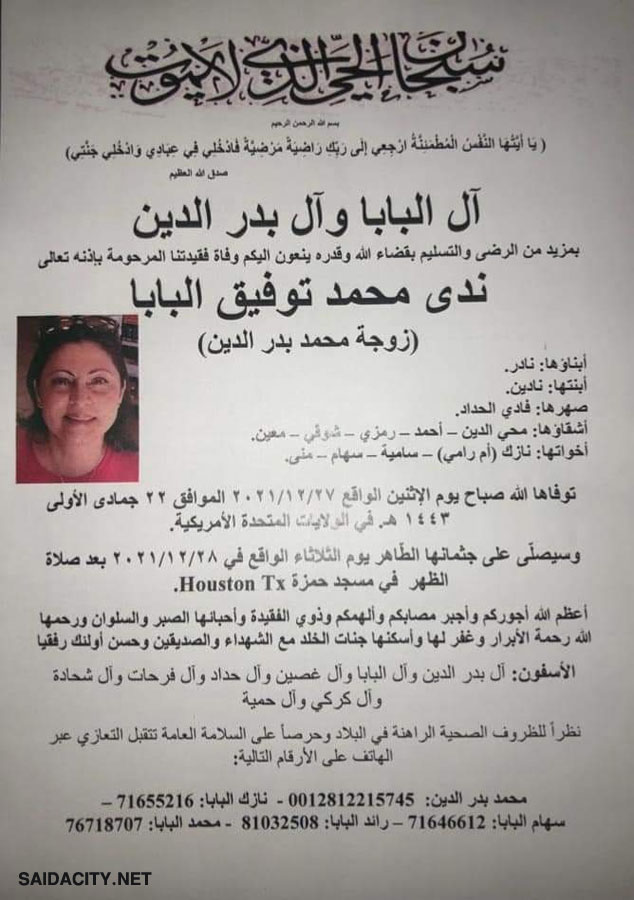 سبحان الحي الذي لا يموت
بسم الله الرحمن الرحيم
( يَا أَيَّتُهَا النَّفْسُ الْمُطْمَئِنَّةُ ارْجِعِي إِلَى رَبِّكِ رَاضِيَةً مَرْضِيَّةً فَادْخُلِي فِي عِبَادِي وَادْخُلِي جَنَّتِي)
صدق الله العظيم
آل البابا وآل بدر الدين
بمزيد من الرضى والتسليم بقضاء الله وقدره ينعون اليكم وفاة فقيدتنا المرحومة بإذنه تعالى
ندى محمد توفيق البابا
(زوجة محمد بدر الدين)
أبناؤها: نادر.
أبنتها: نادين.
صهرها: فادي الحداد.
أشقاؤها: محي الدين – أحمد – رمزي – شوقي – معين.
أخواتها: نازك (أم رامي) – سامية – سهام – منى.
توفاها الله صباح يوم الإثنين الواقع ٢٠٢١/١٢/٢٧ الموافق ٢٢ جمادى الأولى
١٤٤٣ هـ. في الولايات المتحدة الأمريكية.
وسيصلّى على جثمانها الطّاهر يوم الثلاثاء الواقع في ٢٠٢١/١٢/٢٨ بعد صلاة
الظهر في مسجد حمزة Houston Tx.
أعظم الله أجوركم وأجبر مصابكم وألهمكم وذوي الفقيدة وأحبائها الصبر والسلوان ورحمها
الله رحمة الأبرار وغفر لها وأسكنها جنات الخلد مع الشهداء والصديقين وحسن أولئك رفقيا
الأسفون: آل بدر الدين وآل البابا وآل غصين وآل حداد وآل فرحات وآل شحادة
وآل كركي وآل حمية
نظراً للظروف الصحية الراهنة في البلاد وحرصاً على السلامة العامة تتقبل التعازي عبر
الهاتف على الأرقام التالية:
محمد بدر الدين: 0012812215745 - نازك البابا: 71655216 –
سهام البابا: 71646612 – رائد البابا: 81032508 - محمد البابا: 76718707
SAIDACITY.NET